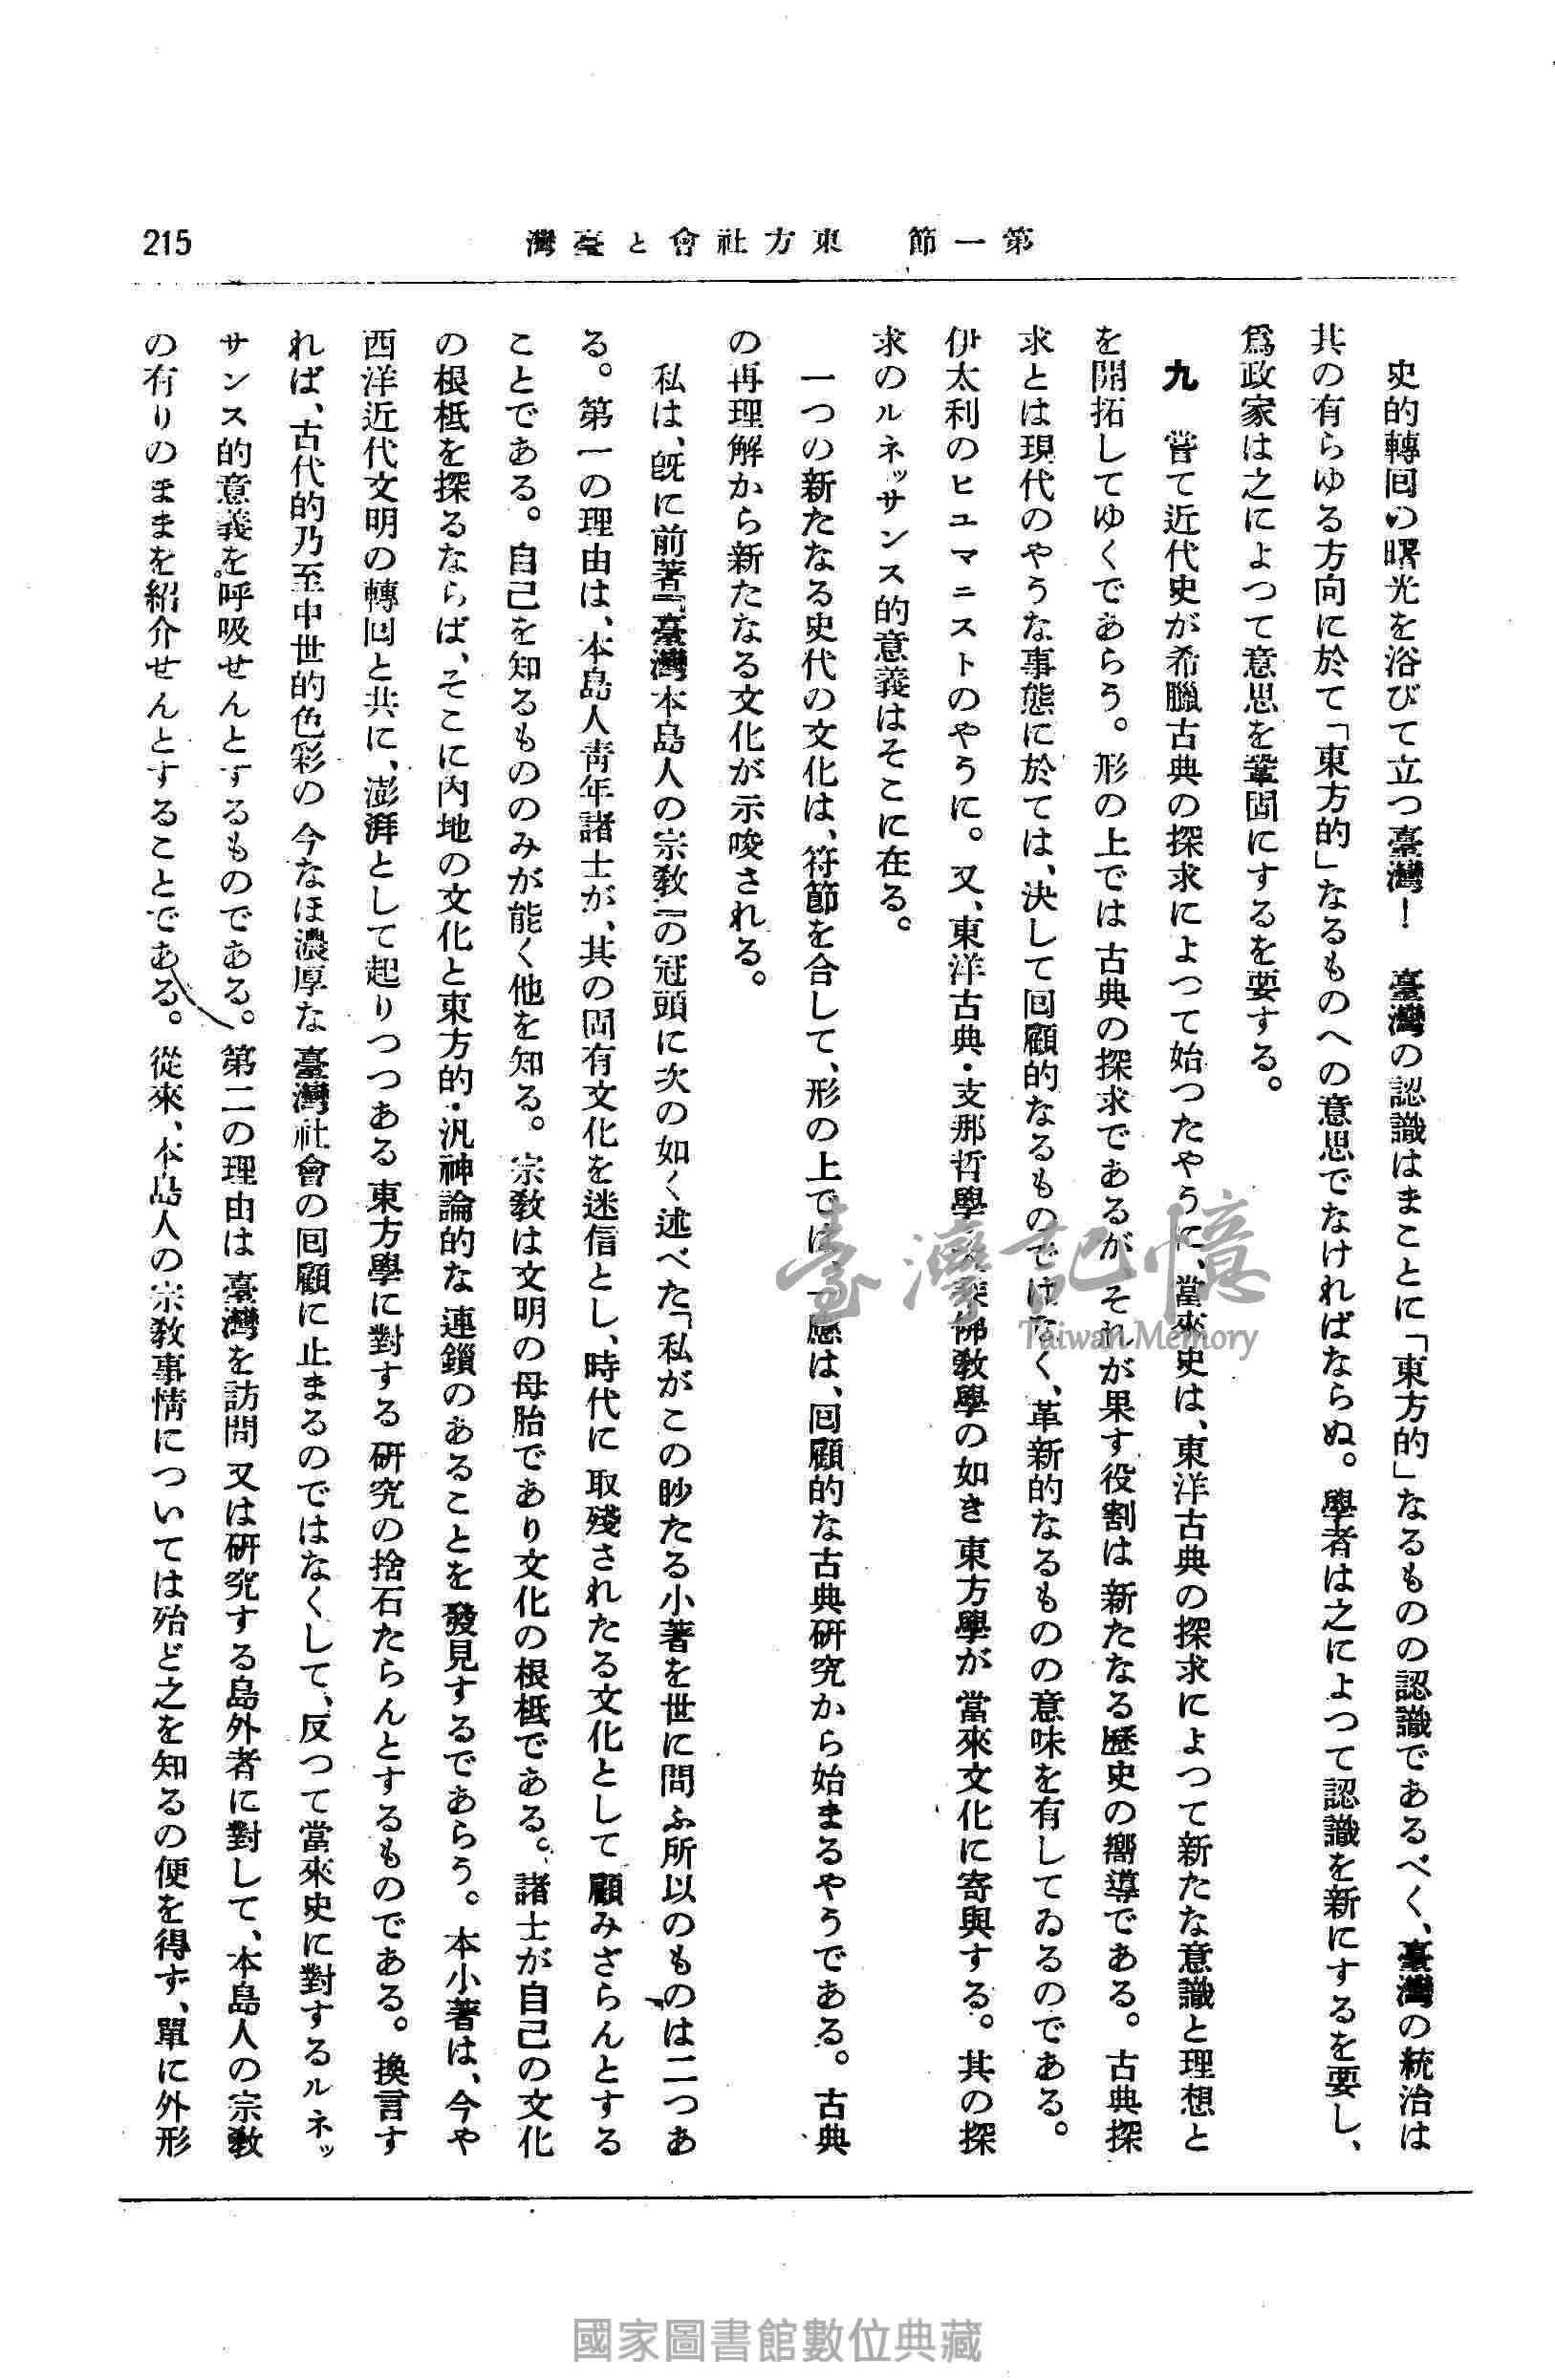 第一節　東方社會と臺灣　215
史的轉囘の曙光を浴びて立つ臺灣！　臺灣の認識はまことに「東方的」なるものの認識であるべく、臺灣の統治は
其の有らゆる方向に於て「東方的」なるものへの意思でなければならぬ。學者は之によつて認識を新にするを要し、
爲政家は之によつて意思を鞏固にするを要する。
九　嘗て近代史が希臘古典の探求によつて始つたやうに、當來史は、東洋古典の探求によつて新たな意識と理想と
を開拓してゆくであらう。形の上では古典の探求であるが、それが果す役割は新たなる歷史の嚮導である。古典探
求とは現代のやうな事態に於ては、決して囘顧的なるものではなく、革新的なるものの意味を有してゐるのである。
伊太利のヒユマニストのやうに。又、東洋古典・支那哲學・大乘佛敎學の如き東方學が當來文化に寄與する。其の探
求のルネッサンス的意義はそこに在る。
一つの新たなる史代の文化は、符節を合して、形の上では、一應は、囘顧的な古典硏究から始まるやうである。古典
の再理解から新たなる文化が示唆される。
私は、旣に前著『臺灣本島人の宗敎』の冠頭に次の如く述べた「私がこの眇たる小著を世に問ふ所以のものは二つあ
る。第一の理由は、本島人靑年諸士が、其の固有文化を迷信とし、時代に取殘されたる文化として顧みざらんとする
ことである。自己を知るもののみが能く他を知る。宗敎は文明の母胎であり文化の根柢である。諸士が自己の文化
の根柢を探るならば、そこに內地の文化と東方的・汎神論的な連鎖のあることを發見するであらう。本小著は、今や
西洋近代文明の轉囘と共に、澎湃として起りつつある東方學に對する硏究の捨石たらんとするものである。換言す
れば、古代的乃至中世的色彩の今なほ濃厚な臺灣社會の囘顧に止まるのではなくして、反つて當來史に對するルネッ
サンス的意義を呼吸せんとするものである。第二の理由は臺灣を訪問又は硏究する島外者に對して、本島人の宗敎
の有りのままを紹介せんとすることである。從來、本島人の宗敎事情については殆ど之を知るの便を得ず、單に外形
臺灣記憶
Taiwan Memory
國家圖書館數位典藏